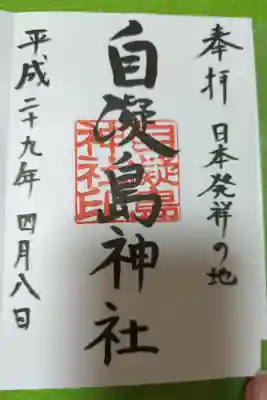 奉拝 日本発祥の地
自凝島神社
自凝島神社印
平成二十九年 四月八日